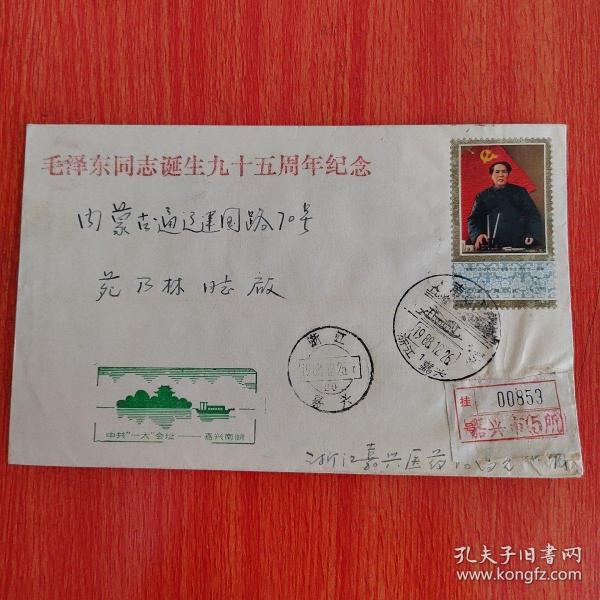 毛泽东同志诞生九十五周年纪念
内蒙古通辽建国路70号
苑乃林同志启
浙江
1988.12.26
嘉兴
1988.12.26
浙江 嘉兴
挂
00853
号
嘉兴市(5所
中共"一大"会址——嘉兴南湖
浙江嘉兴医药
孔夫子旧书网
www.kongfz.com